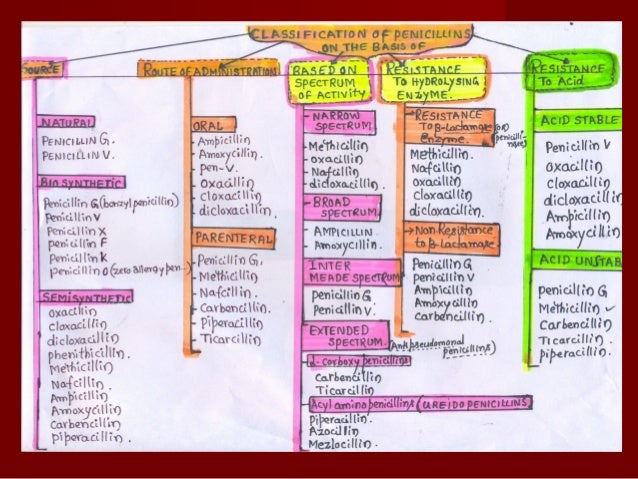 CLASSIFICATION OF PENICILLINS
ON THE BASIS OF
SOURCE
NATURAL
PENICILLIN G.
PENICILLIN V.
BIOSYNTHETIC
Penicillin G (benzyl penicillin)
Penicillin V
Penicillin X
penicillin F
Penicillin K
penicillin O (zero allergy pen...)
SEMISYNTHETIC
oxacillin
cloxacillin
dicloxacillin
phenithicillin.
Methicillin
Nafcillin.
Ampicillin
Amoxycillin
Carbencillin
piperacillin.
ROUTE OF ADMINISTRATION
ORAL
- Ampicillin
- Amoxycillin.
- pen-V.
- Oxacillin
- cloxacillin
- dicloxacillin.
PARENTERAL
- Penicillin G.
- Methicillin
- Nafcillin.
- Carbencillin.
- Piperacillin
- Ticarcillin
BASED ON
SPECTRUM
OF ACTIVITY
- NARROW
SPECTRUM.
- Methicillin
- oxacillin
- Nafcillin
- dicloxacillin.
- BROAD
SPECTRUM
- AMPICILLIN
- Amoxycillin.
INTER
MEADE SPECTRUM
Penicillin G
Penicillin V.
EXTENDED
SPECTRUM. (Antipseudomonal
penicillins)
2-corboxy penicillins
Carbencillin
Ticarcillin
Acyl amino penicillins (UREIDO PENICILLINS)
Piperacillin.
Azocillin
Mezlocillin.
RESISTANCE
TO HYDROLYSING
ENZYME.
→RESISTANCE
To β-Lactamase (or)
Enzyme. penicilli-
nase)
Methicillin.
Nafcillin
oxacillin
cloxacillin
dicloxacillin.
→Non Resistance
to β Lactamase
Penicillin G
penicillin V
Ampicillin
Amoxycillin
carbencillin.
RESISTANCE
To Acid
ACID STABLE
Penicillin V
oxacillin
cloxacillin
dicloxacillin
Ampicillin
Amoxycillin
ACID UNSTAB
penicillin G
Methicillin
Carbencillin
Ticarcillin.
piperacillin.